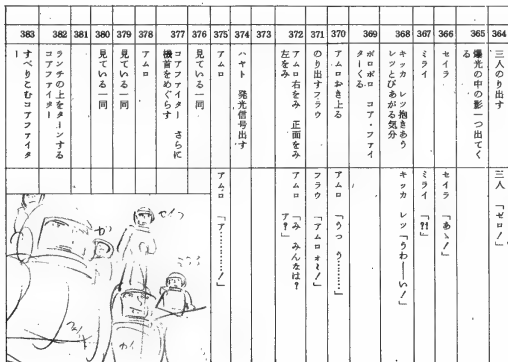 364
三人のり出す
三人 「ゼロ!」
365
爆光の中の影一つ出てく
る
366
セイラ
セイラ 「あゝ!」
367
ミライ
ミライ 「?!」
368
キッカ レツ抱きあう
レツとびあがる気分
キッカ レツ「うわーーい!」
369
ボロボロ コア・ファイ
ターくる
370
アムロおき上る
アムロ 「うっ う………」
371
のり出すフラウ
フラウ 「アムロォ〜!」
372
アムロ右をみ 正面をみ
左をみ
アムロ 「み みんなは?
ア?」
373
374
ハヤト 発光信号出す
375
アムロ
アムロ 「ア…………!」
376
見ている一同
377
コアファイター さらに
機首をめぐらす
378
アムロ
379
見ている一同
380
見ている一同
381
382
ランチの上をターンする
コアファイター
383
すべりこむコアファイタ
ー
セイラ